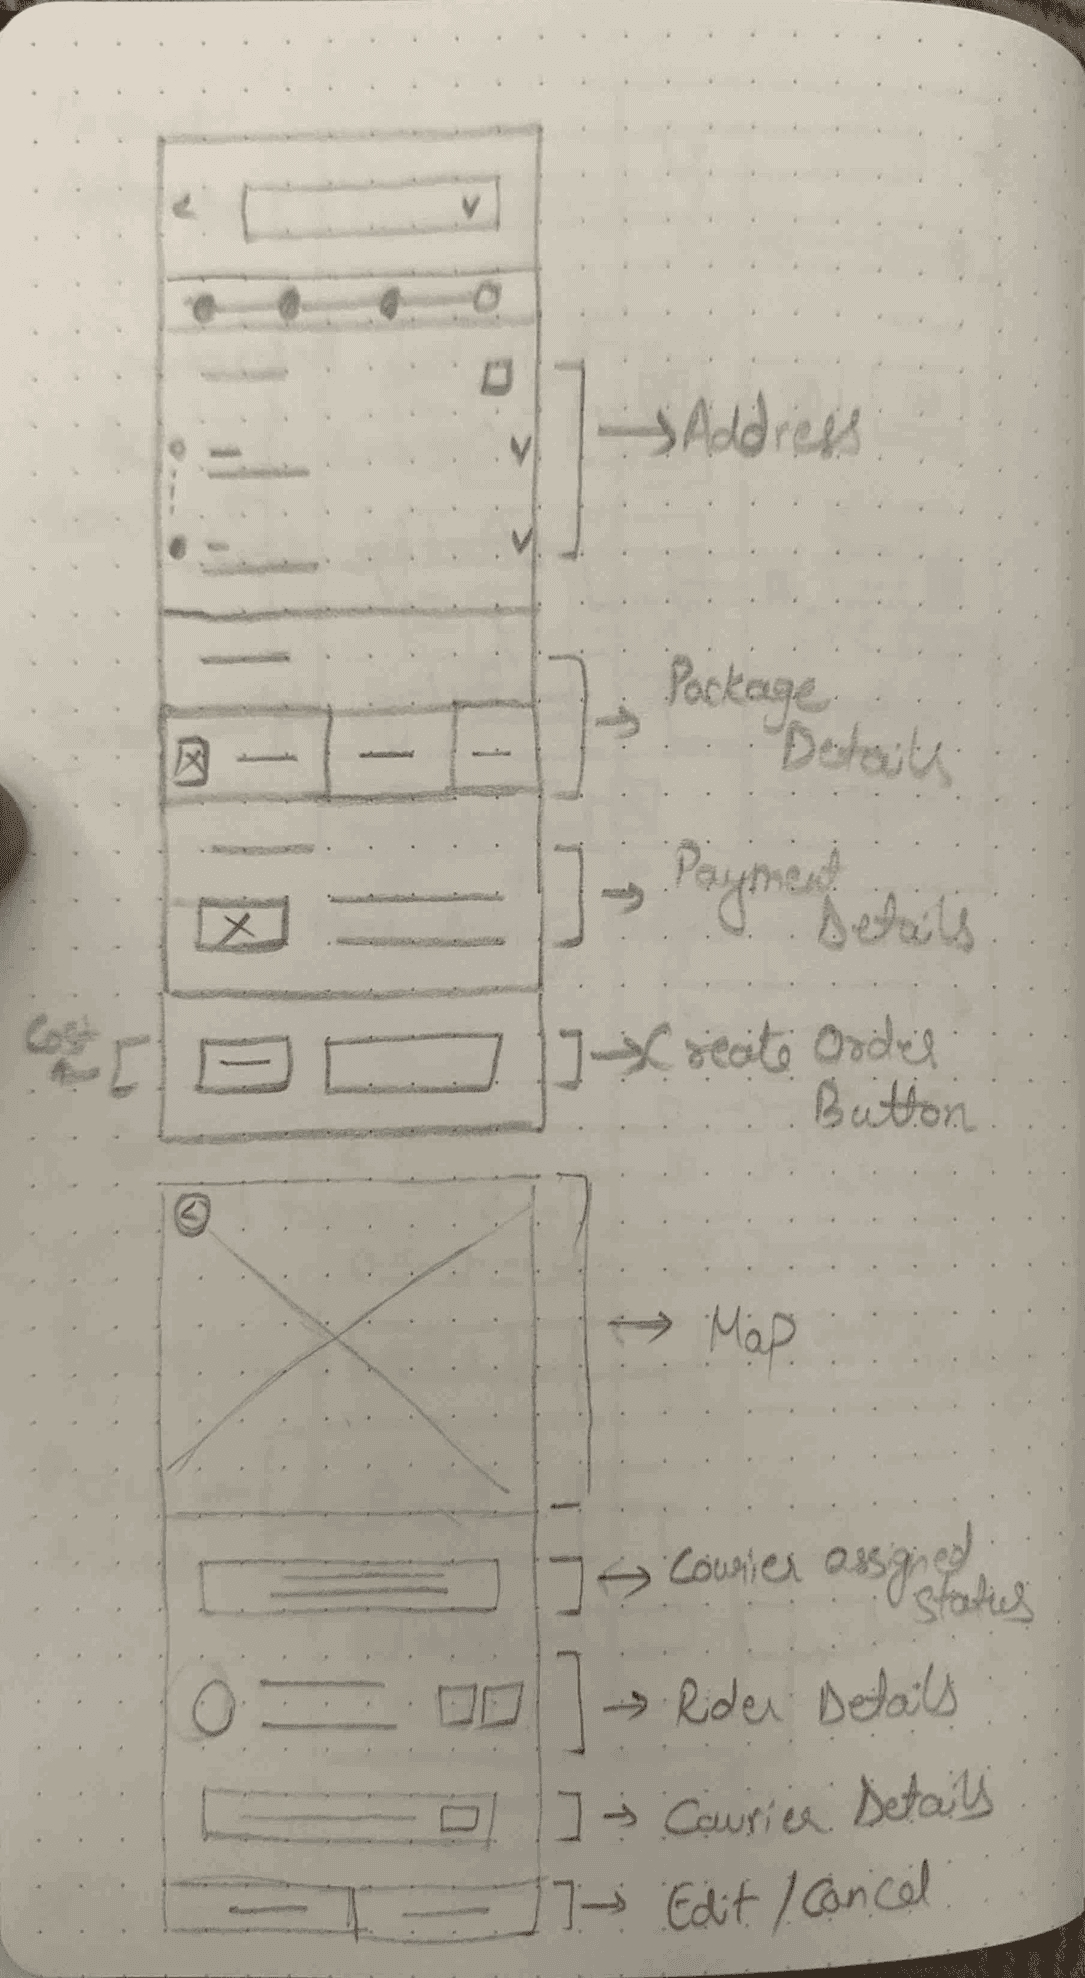 Address
Package
Details
Payment
Details
Cost
Create Order
Button
Map
Courier assigned
status
Rider Details
Courier Details
Edit / Cancel